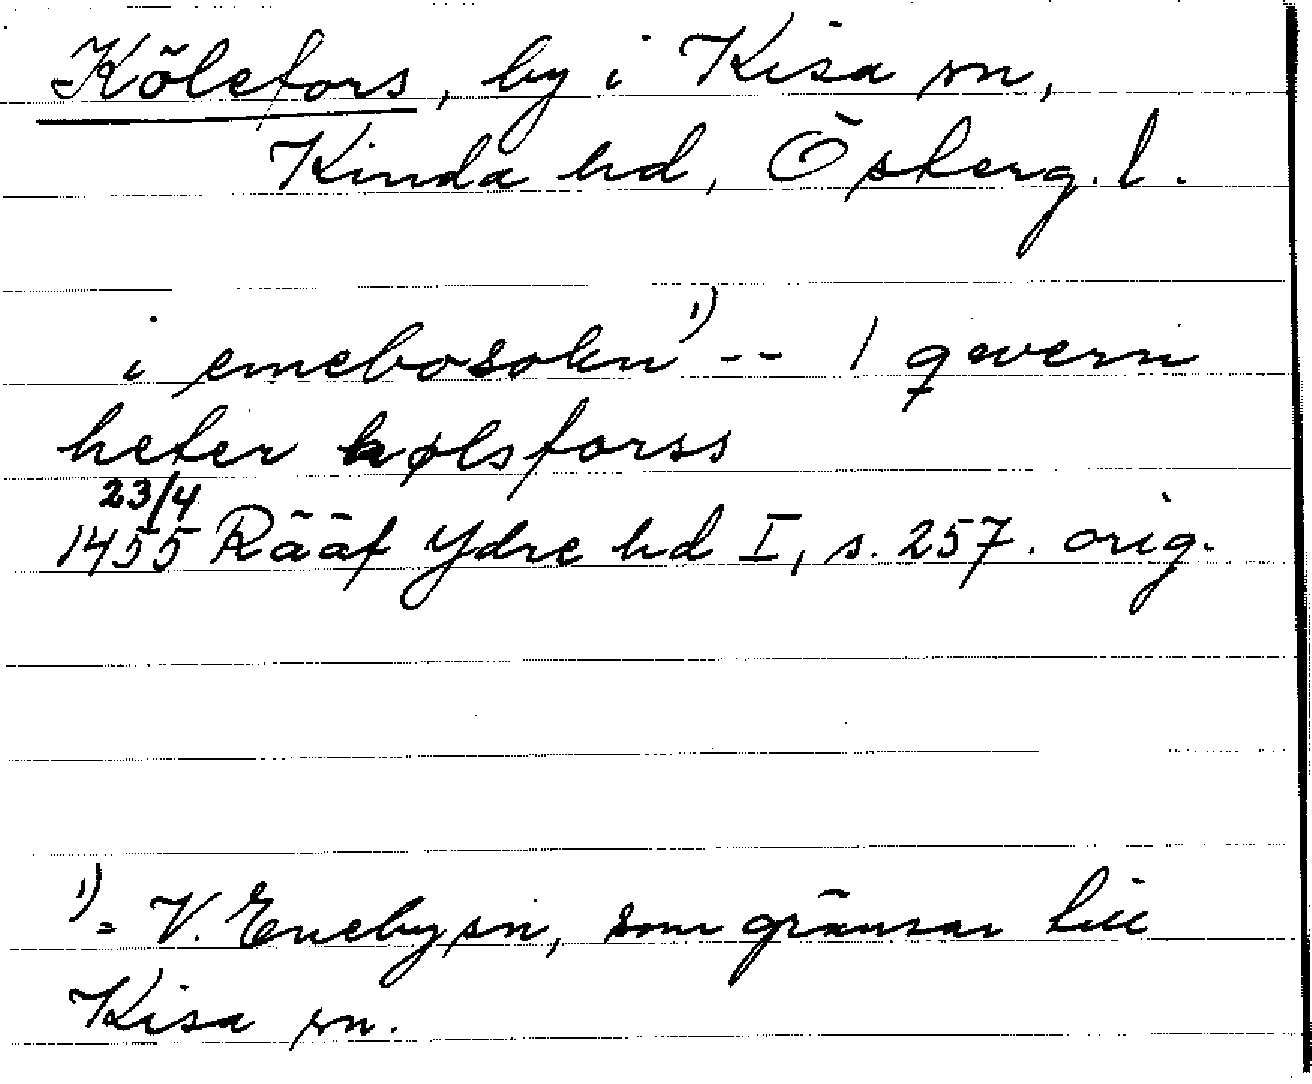 Kölefors, by i Kisa sn,
Kinda hd, Österg. l.
i emebosokn ¹) -- 1 qwern
heter kølsforss
23/4
1455 Rääf Ydre hd I, s. 257. orig.
¹) = V. Eneby sn, som gränsar till
Kisa sn.